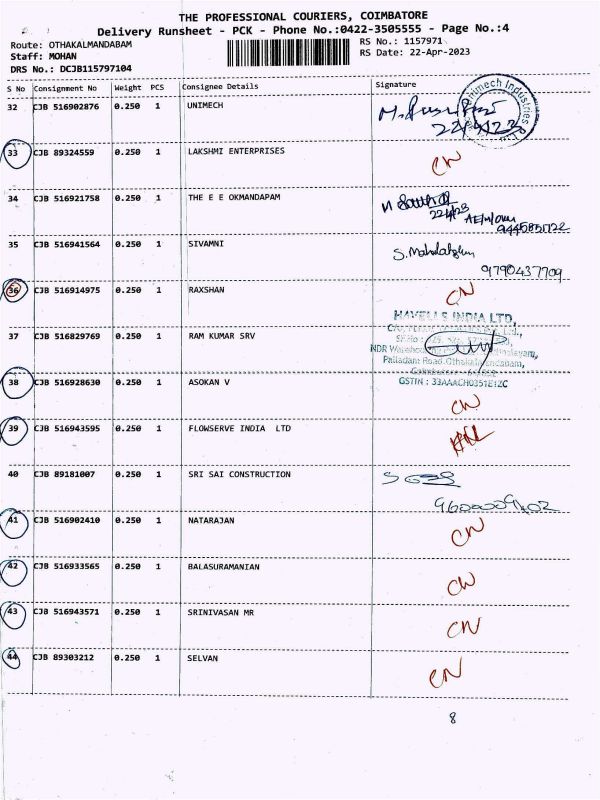 THE PROFESSIONAL COURIERS, COIMBATORE
Delivery Runsheet - PCK - Phone No.:0422-3505555 - Page No.:4
Route: OTHAKALMANDABAM
RS No.: 1157971
Staff: MOHAN
RS Date: 22-Apr-2023
DRS No.: DCJB115797104
S No Consignment No Weight PCS Consignee Details Signature
32 CJB 516902876 0.250 1 UNIMECH
33 CJB 89324559 0.250 1 LAKSHMI ENTERPRISES CN
34 CJB 516921758 0.250 1 THE E E OKMANDAPAM
35 CJB 516941564 0.250 1 SIVAMNI
9790437709
36 CJB 516914975 0.250 1 RAXSHAN CN
HAVELLS INDIA LTD,
37 CJB 516829769 0.250 1 RAM KUMAR SRV
Palladam Road, Othakalmandapam,
GSTIN : 33AAACH0351E1ZC
38 CJB 516928630 0.250 1 ASOKAN V CN
39 CJB 516943595 0.250 1 FLOWSERVE INDIA LTD
40 CJB 89181007 0.250 1 SRI SAI CONSTRUCTION
41 CJB 516902410 0.250 1 NATARAJAN CN
42 CJB 516933565 0.250 1 BALASURAMANIAN CN
43 CJB 516943571 0.250 1 SRINIVASAN MR CN
44 CJB 89303212 0.250 1 SELVAN CN
8